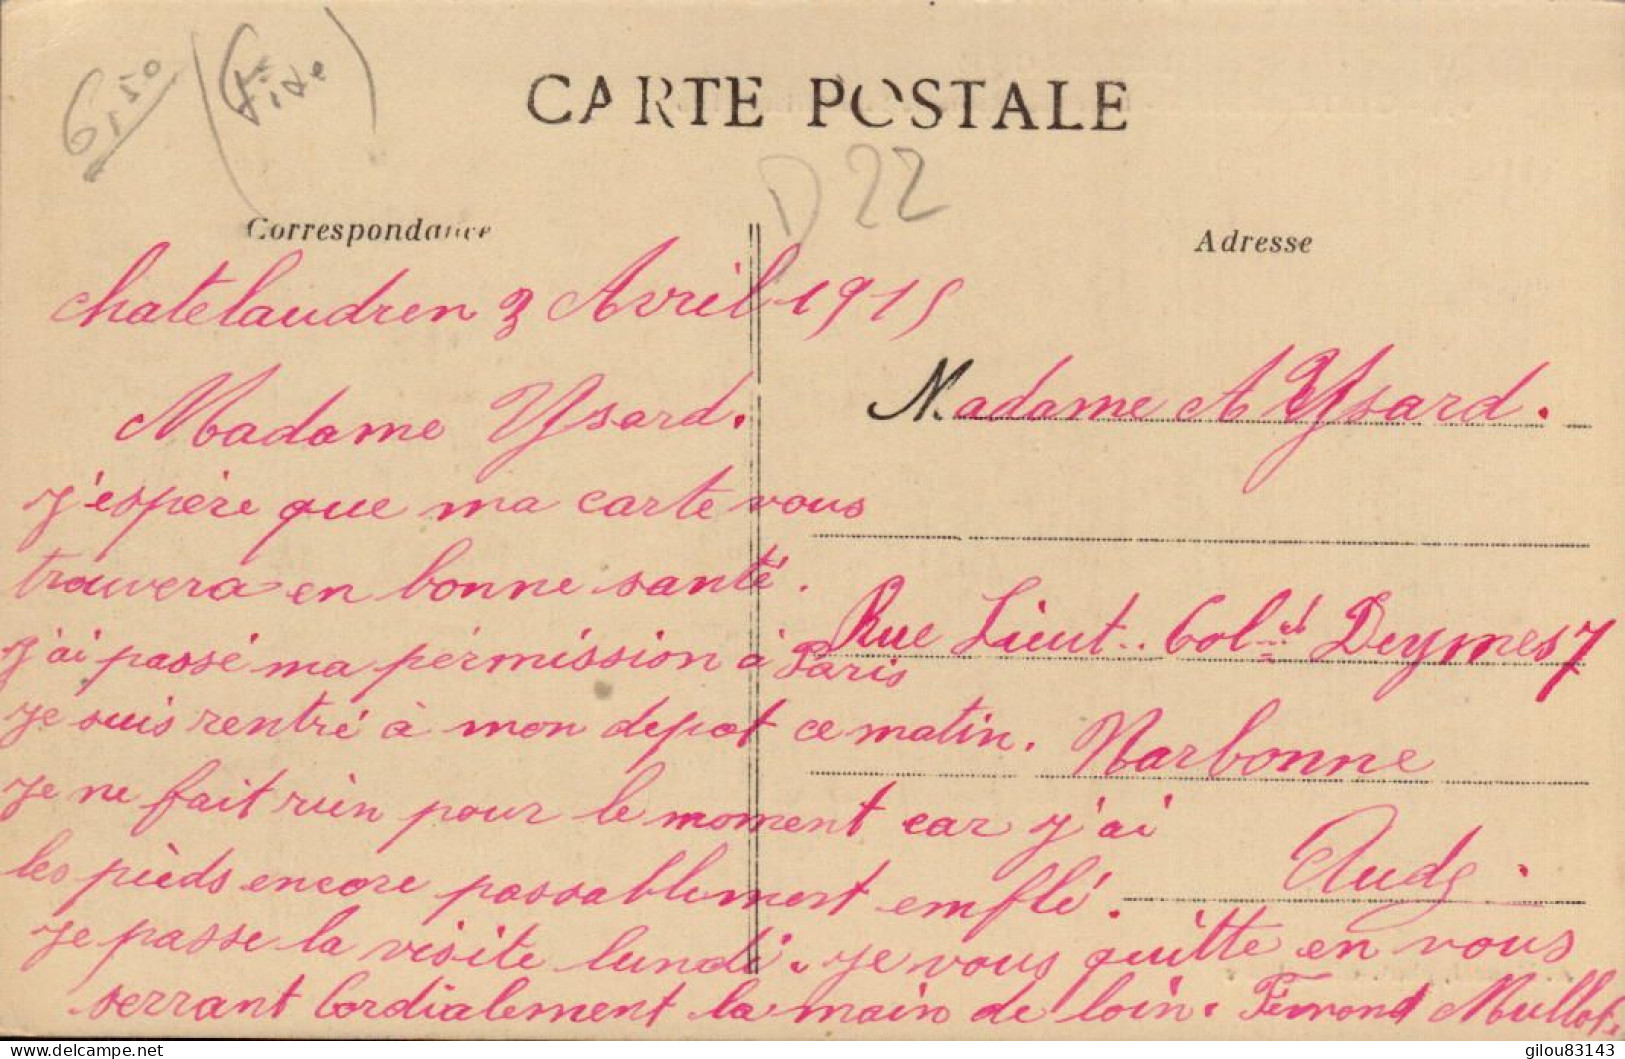 6,50
(Fixe)
CARTE POSTALE
D 22
Correspondance
Adresse
Chatelaudren 3 Avril 1915
Madame Ysard.
j'espère que ma carte vous
trouvera en bonne santé.
j'ai passé ma pérmission à Paris
je suis rentré à mon depot ce matin.
je ne fait rien pour le moment car j'ai
les pieds encore passablement emflé.
je passe la visite lundi. je vous quitte en vous
serrant Cordialement la main de loin. Fernand Mullot
Madame A Ysard.
Rue Lieut.. Colel Deymes 7
Narbonne
Aude.
delcampe.net
gilou83143